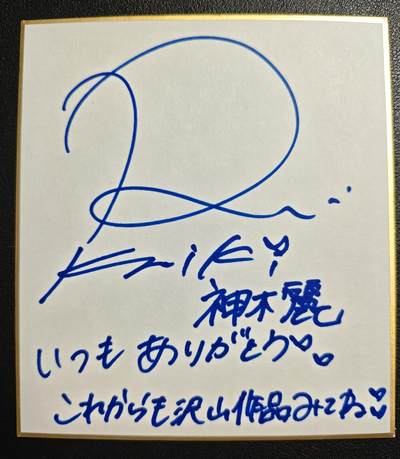 Rei
Kamiki
神木麗
いつもありがとう♡
これからも沢山作品みてね♡